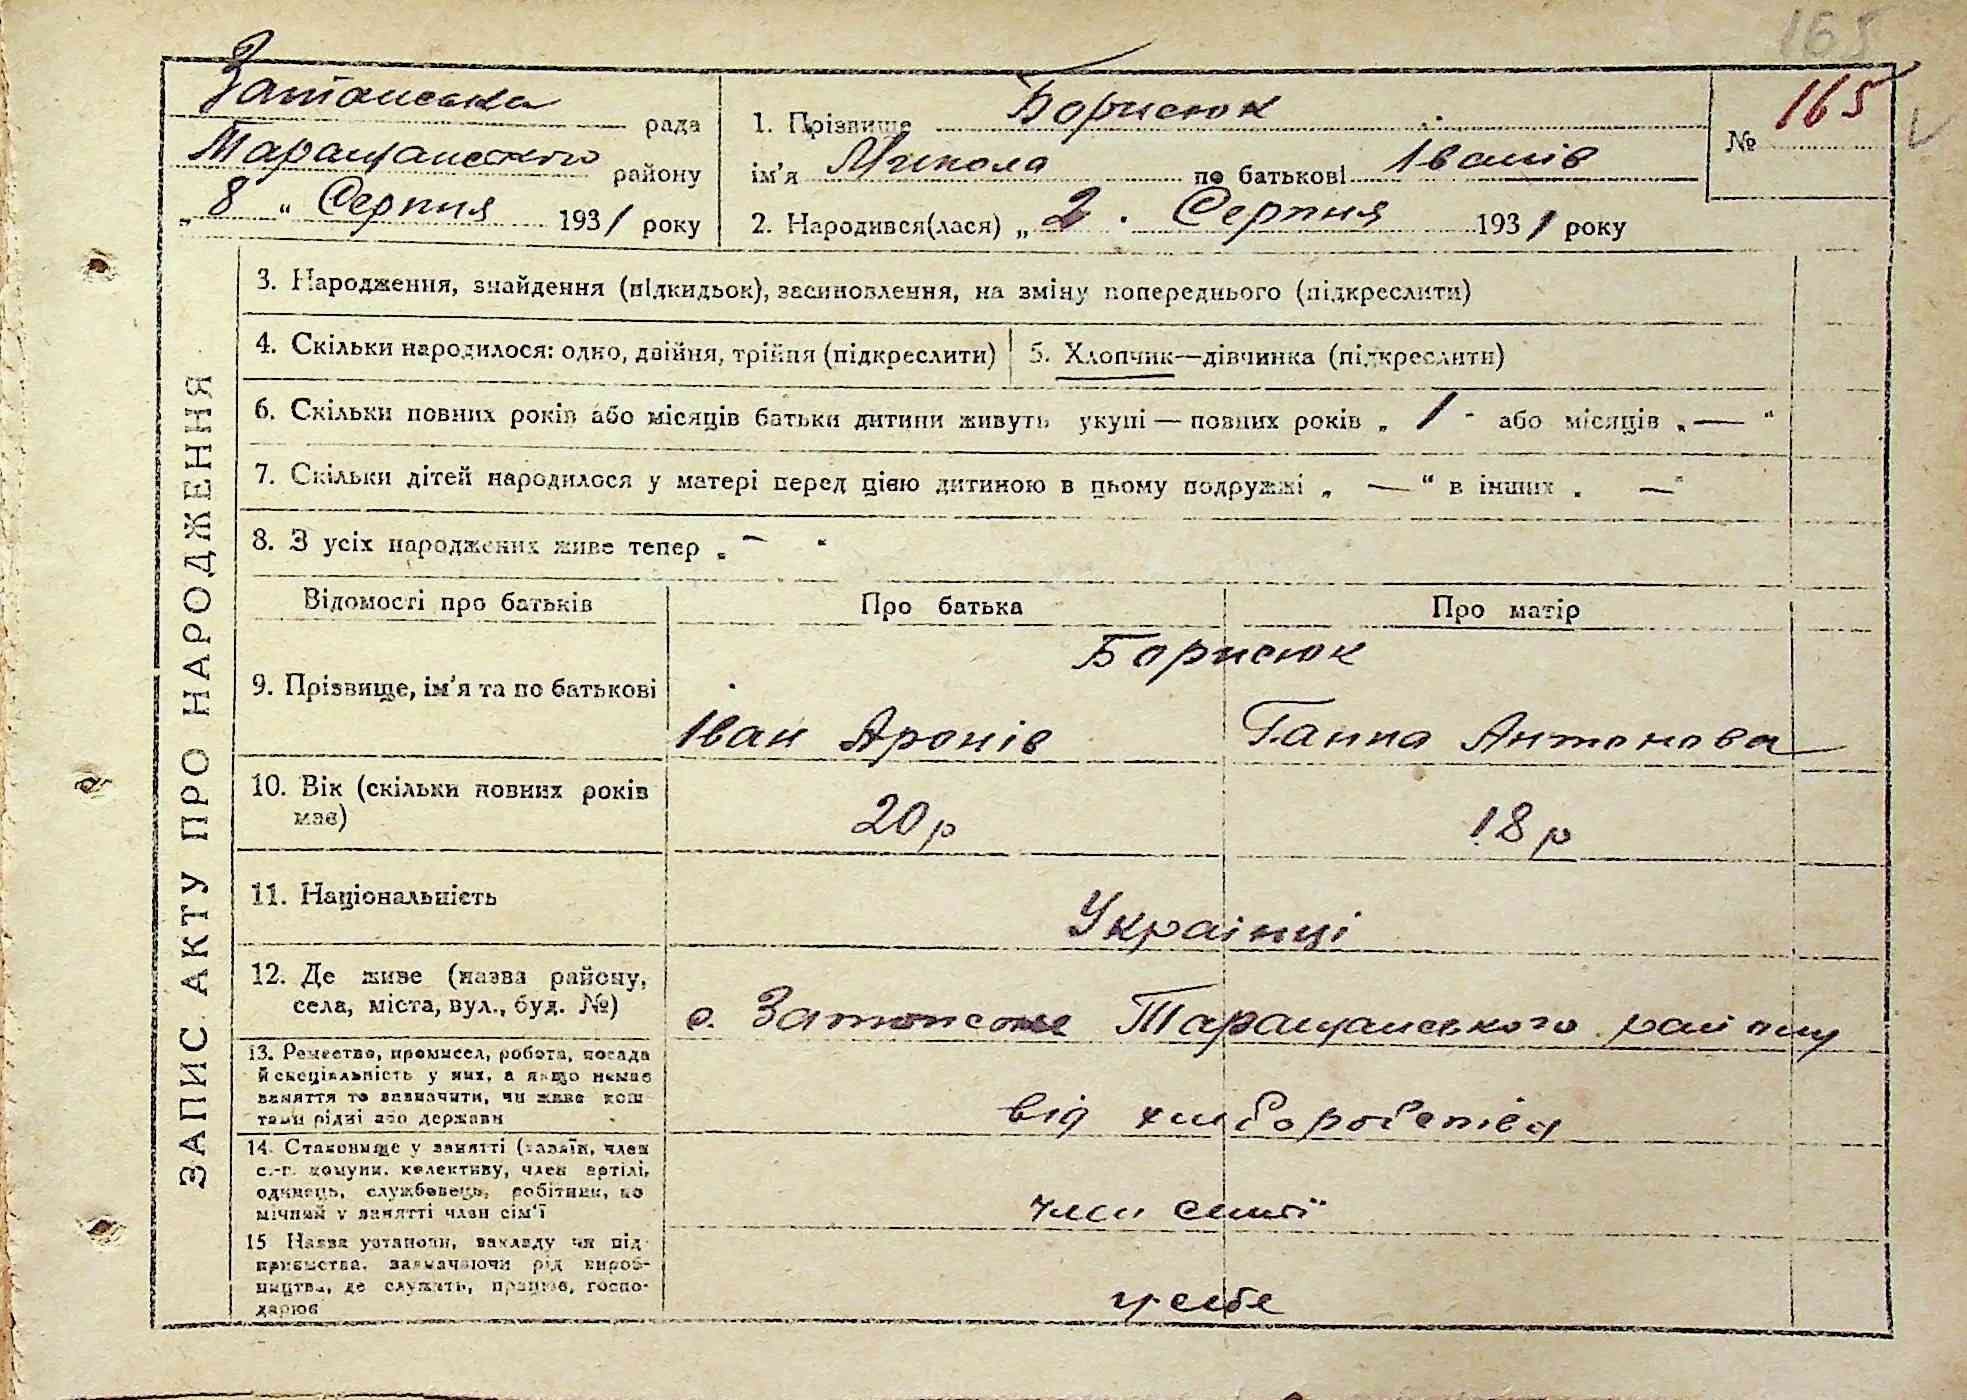 165
Затонська рада
Таращанського району
„ 8 “ Серпня 1931 року
1. Прізвище Борисюк
ім'я Микола по батькові Іванів
№ 165
2. Народився(лася) „ 2 . Серпня 1931 року
ЗАПИС АКТУ ПРО НАРОДЖЕННЯ
3. Народження, знайдення (підкидьок), засиновлення, на зміну попереднього (підкреслити)
4. Скільки народилося: одно, двійня, трійня (підкреслити) 5. Хлопчик—дівчинка (підкреслити)
6. Скільки повних років або місяців батьки дитини живуть укупі — повних років „ 1 - або місяців „ — “
7. Скільки дітей народилося у матері перед цією дитиною в цьому подружжі „ — “ в інших „ — “
8. З усіх народжених живе тепер „ — “
Відомості про батьків Про батька Про матір
9. Прізвище, ім'я та по батькові
Борисюк
Іван Яронів Ганна Антонова
10. Вік (скільки повних років
має)
20 р 18 р
11. Національність
Українці
12. Де живе (назва району,
села, міста, вул., буд. №)
с. Таращанського району
13. Ремество, промисел, робота, посада
й спеціяльність у них, а якщо немає
заняття то зазначити, чи живе кош
тами рідні або держави
від хлібороб
14. Становище у занятті (хазяїн, член
с.-г. комуни, колективу, член артілі,
одинець, службовець, робітник, по
мічний у занятті член сім'ї
член сімї
15 Назва установи, закладу чи під
приємства, зазначаючи рід вироб-
ництва, де служить, працює, госпо-
дарює
у себе